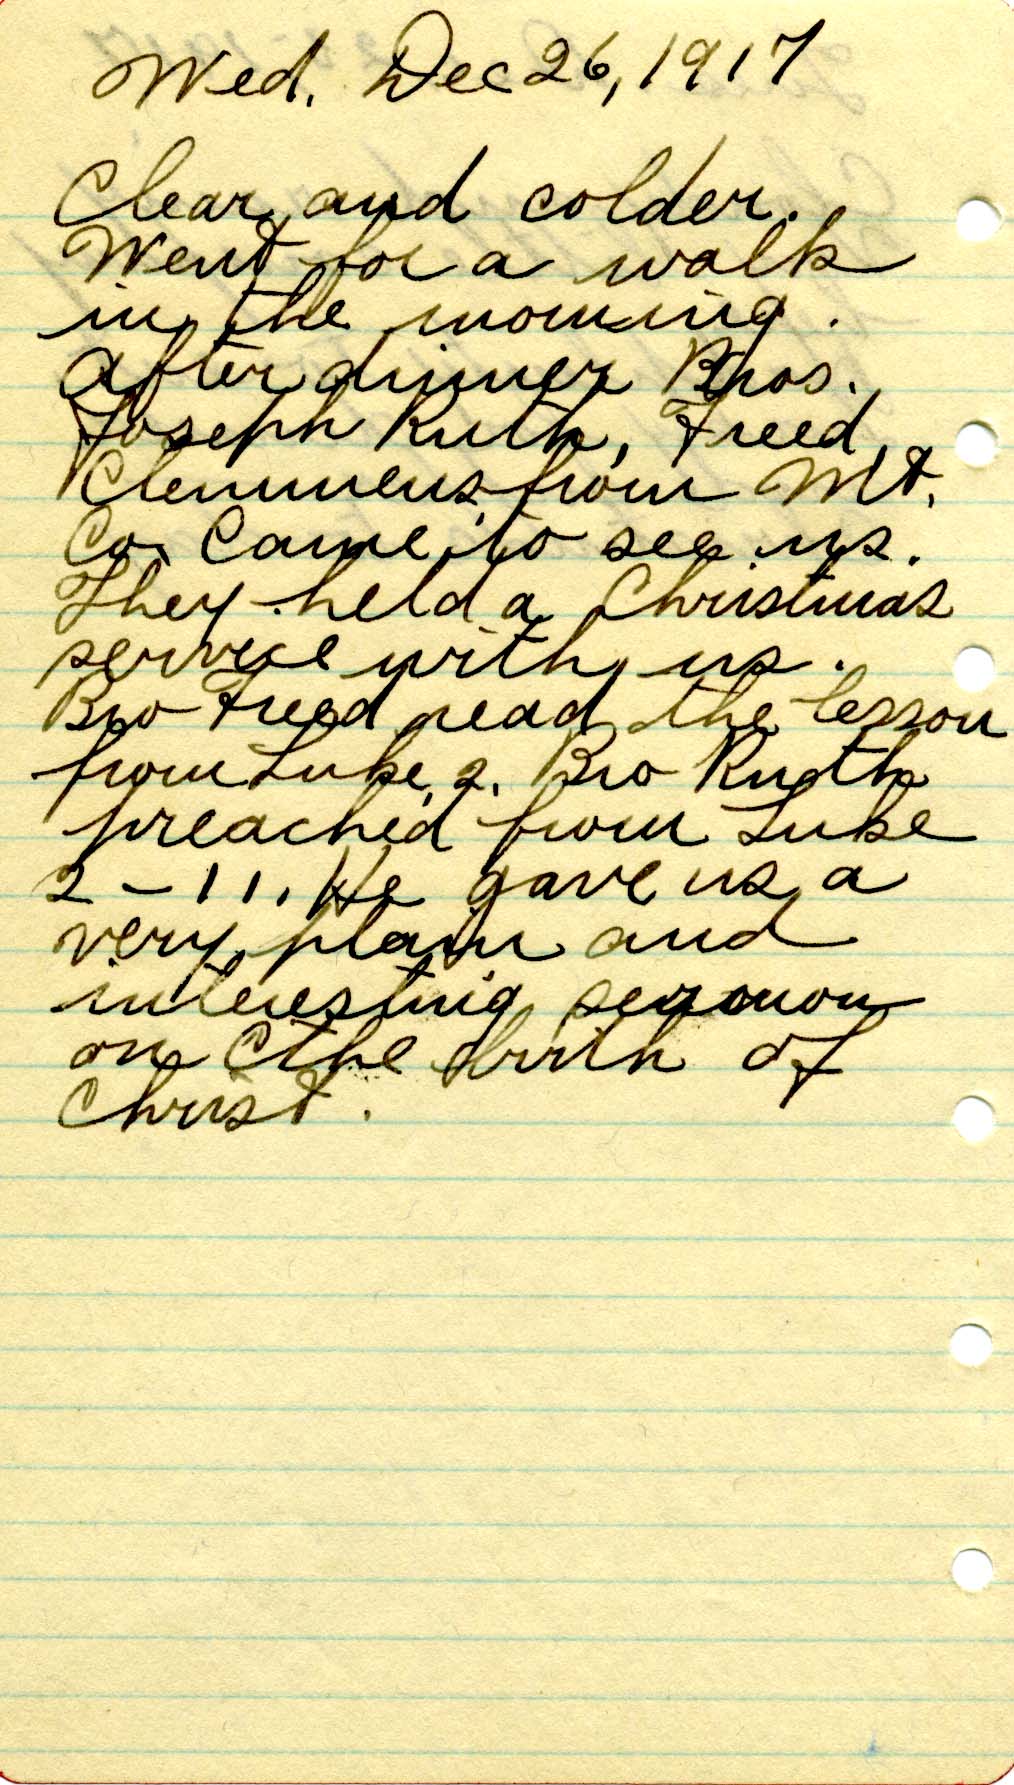 Wed. Dec 26, 1917
Clear and colder.
Went for a walk
in the morning.
After dinner Bros.
Joseph Ruth, Freed,
Clemmens from Mt.
Co. Came to see us.
They held a Christmas
service with us.
Bro Freed read the lesson
from Luke 2. Bro Ruth
preached from Luke
2 - 11. He gave us a
very plain and
interesting sermon
on the birth of
Christ.